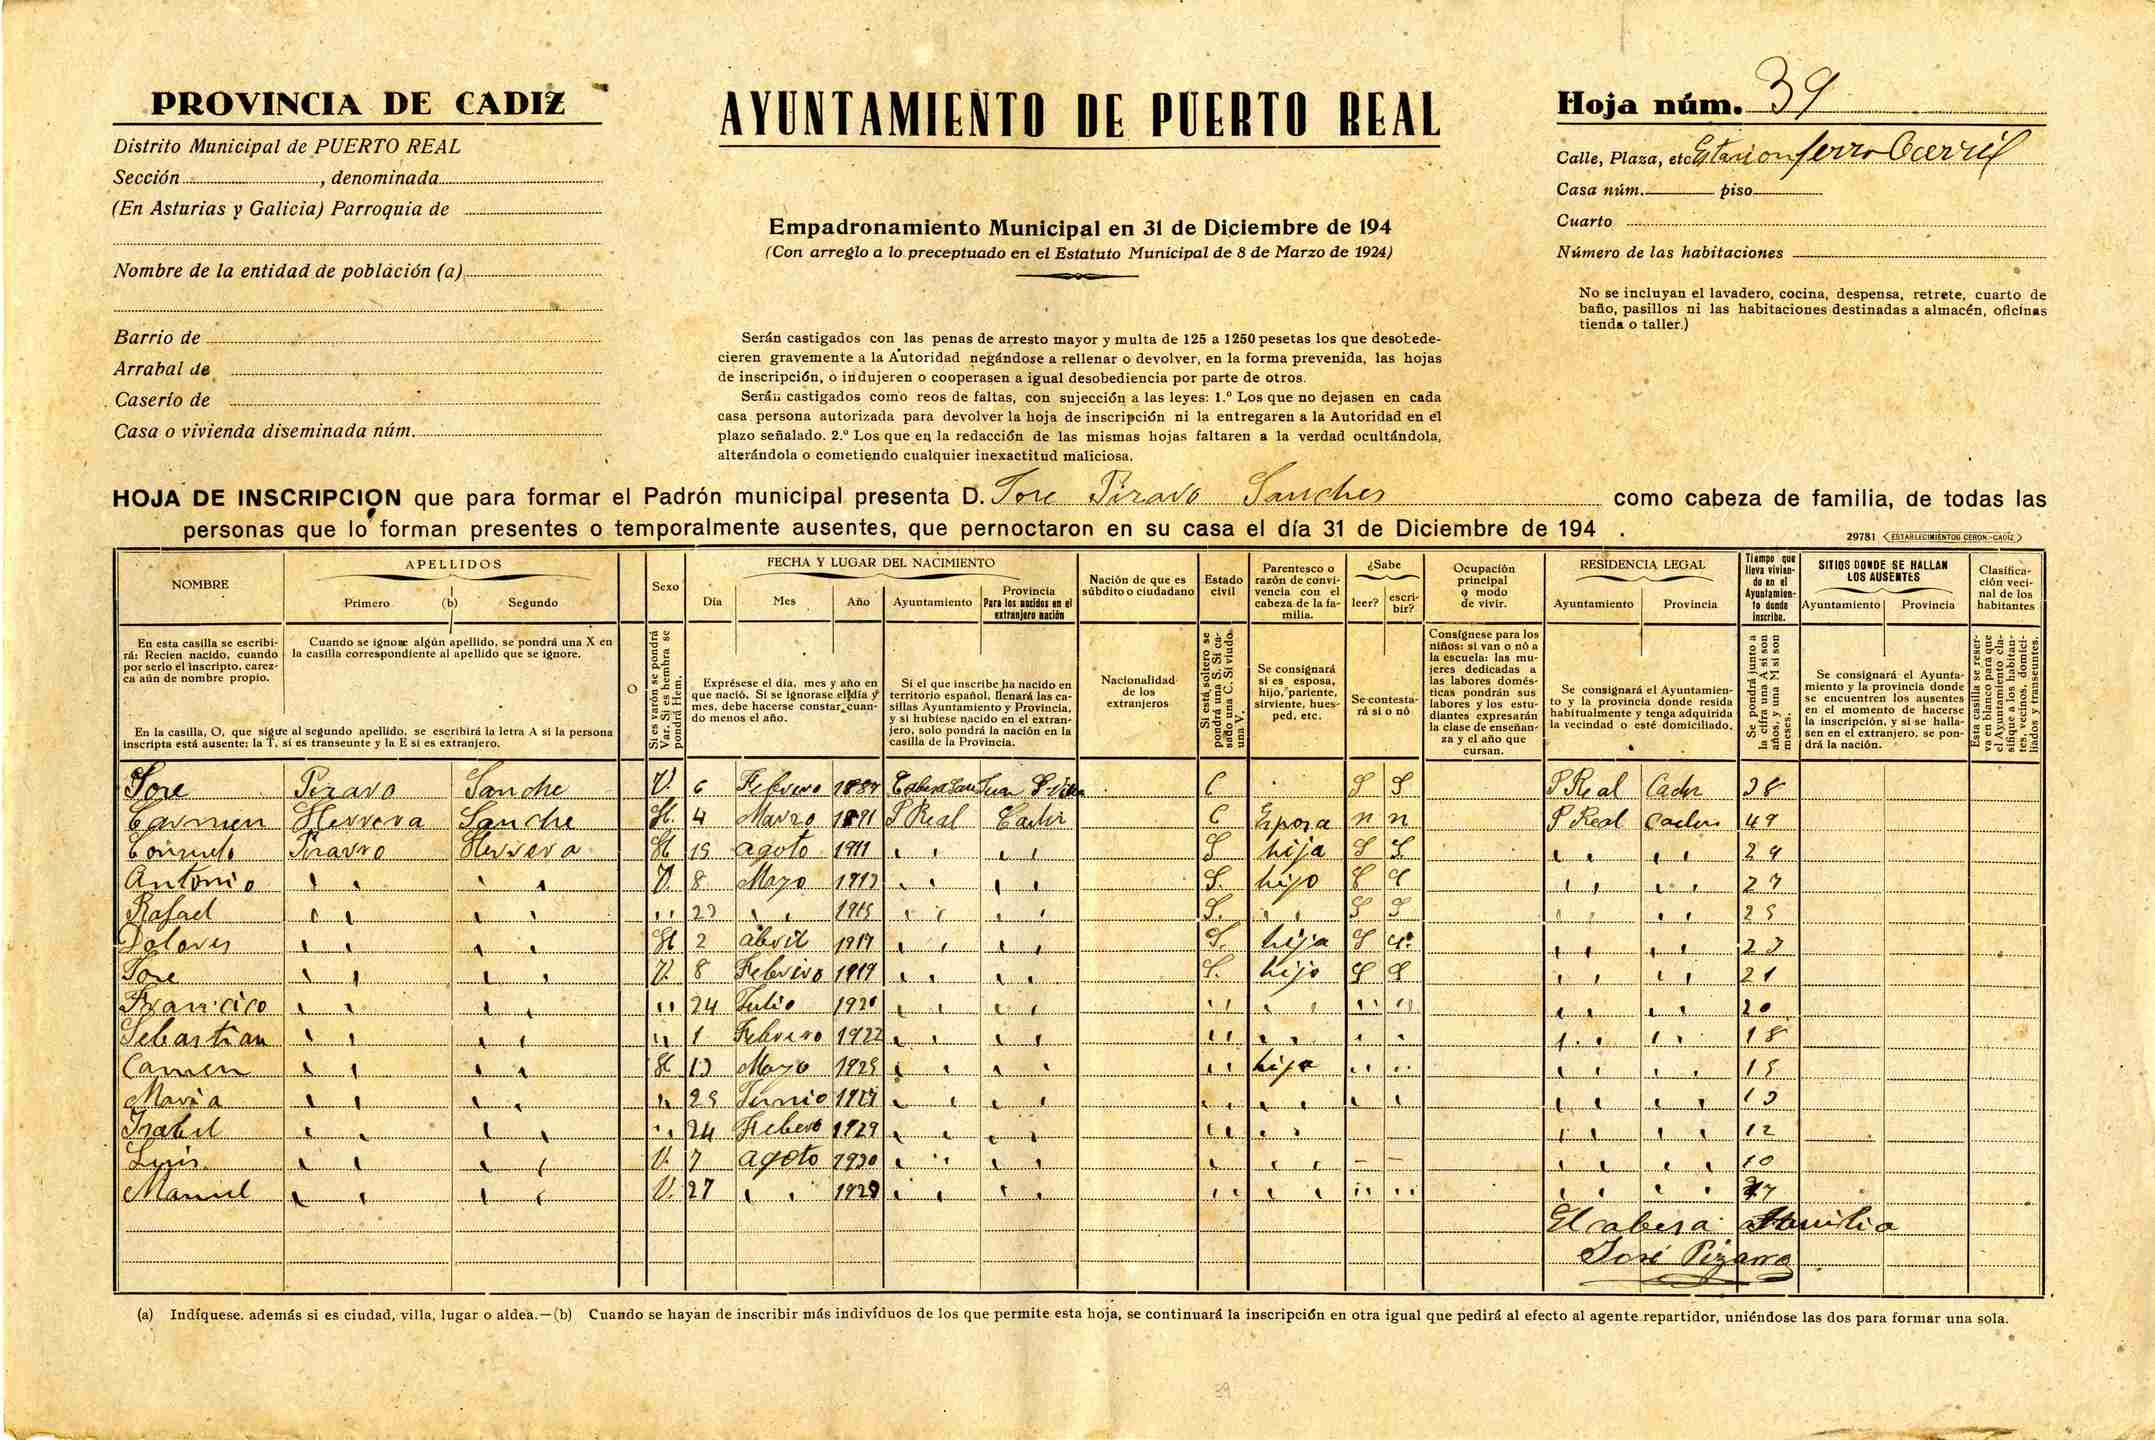 PROVINCIA DE CADIZ
Distrito Municipal de PUERTO REAL
Sección , denominada
(En Asturias y Galicia) Parroquia de
Nombre de la entidad de población (a)
Barrio de
Arrabal de
Caserío de
Casa o vivienda diseminada núm.
AYUNTAMIENTO DE PUERTO REAL
Empadronamiento Municipal en 31 de Diciembre de 194
(Con arreglo a lo preceptuado en el Estatuto Municipal de 8 de Marzo de 1924)
Serán castigados con las penas de arresto mayor y multa de 125 a 1250 pesetas los que desobede-
cieren gravemente a la Autoridad negándose a rellenar o devolver, en la forma prevenida, las hojas
de inscripción, o indujeren o cooperasen a igual desobediencia por parte de otros.
Serán castigados como reos de faltas, con sujección a las leyes: 1.º Los que no dejasen en cada
casa persona autorizada para devolver la hoja de inscripción ni la entregaren a la Autoridad en el
plazo señalado. 2.º Los que en la redacción de las mismas hojas faltaren a la verdad ocultándola,
alterándola o cometiendo cualquier inexactitud maliciosa.
Hoja núm. 39
Calle, Plaza, etc Estacion ferro Carril
Casa núm. piso
Cuarto
Número de las habitaciones
No se incluyan el lavadero, cocina, despensa, retrete, cuarto de
baño, pasillos ni las habitaciones destinadas a almacén, oficinas
tienda o taller.)
HOJA DE INSCRIPCION que para formar el Padrón municipal presenta D. Jose Pizavo Sanches como cabeza de familia, de todas las
personas que lo forman presentes o temporalmente ausentes, que pernoctaron en su casa el día 31 de Diciembre de 194 .
29781 ESTABLECIMIENTOS CERON.-CADIZ
NOMBRE
APELLIDOS
Primero (b) Segundo
O
Sexo
FECHA Y LUGAR DEL NACIMIENTO
Día Mes Año Ayuntamiento
Provincia
Para los nacidos en el
extranjero nación
Nación de que es
súbdito o ciudadano
Estado
civil
Parentesco o
razón de convi-
vencia con el
cabeza de la fa-
milia.
¿Sabe
leer? escri-
bir?
Ocupación
principal
o modo
de vivir.
RESIDENCIA LEGAL
Ayuntamiento Provincia
Tiempo que
lleva vivien-
do en el
Ayuntamien-
to donde
inscribe.
SITIOS DONDE SE HALLAN
LOS AUSENTES
Ayuntamiento Provincia
Clasifica-
ción veci-
nal de los
habitantes
En esta casilla se escribi-
rá: Recien nacido, cuando
por serlo el inscripto, carez-
ca aún de nombre propio.
Cuando se ignore algún apellido, se pondrá una X en
la casilla correspondiente al apellido que se ignore.
En la casilla, O, que sigue al segundo apellido, se escribirá la letra A si la persona
inscripta está ausente; la T, si es transeunte y la E si es extranjero.
Si es varón se pondrá
Var. Si es hembra se
pondrá Hem.
Exprésese el día, mes y año en
que nació. Si se ignorase el día y
mes, debe hacerse constar cuan-
do menos el año.
Si el que inscribe ha nacido en
territorio español, llenará las ca-
sillas Ayuntamiento y Provincia,
y si hubiese nacido en el extran-
jero, solo pondrá la nación en la
casilla de la Provincia.
Nacionalidad
de los
extranjeros
Si está soltero se
pondrá una S. Si ca-
sado una C. Si viudo
una V.
Se consignará
si es esposa,
hijo, pariente,
sirviente, hues-
ped, etc.
Se contesta-
rá si o nó
Consígnese para los
niños: si van o nó a
la escuela: las mu-
jeres dedicadas a
las labores domés-
ticas pondrán sus
labores y los estu-
diantes expresarán
la clase de enseñan-
za y el año que
cursan.
Se consignará el Ayuntamien-
to y la provincia donde resida
habitualmente y tenga adquirida
la vecindad o esté domiciliado.
Se pondrá junto a
la cifra una A si son
años, y una M si son
meses.
Se consignará el Ayunta-
miento y la provincia donde
se encuentren los ausentes
en el momento de hacerse
la inscripción, y si se halla-
sen en el extranjero, se pon-
drá la nación.
Esta casilla se reser-
va en blanco para que
el Ayuntamiento cla-
sifique a los habitan-
tes, vecinos, domici-
liados y transeuntes.
Jose Pizavo Sanche V. 6 Febrero 1887 C S S P Real Cadiz 38
Carmen Herrera Sanche H. 4 Marzo 1891 P Real Cadiz C Esposa n n P Real Cadiz 49
Consuelo Pizavro Herrera H 15 agoto 1911 " " S hija S S " " 29
Antonio " " V. 8 Mayo 1913 " " S. hijo S S " " 27
Rafael " " " 23 " 1915 " " S. " S S " " 25
Dolores " " H 2 abril 1917 " " S. hija S S " " 23
Jose " " V. 8 Febrero 1919 " " S. hijo S S " " 21
Francisco " " " 24 Julio 1920 " " " " " " " " 20
Sebastian " " " 1 Febrero 1922 " " " " " " " " 18
Carmen " " H 13 Mayo 1925 " " " hija " " " " 15
Maria " " " 25 Junio 1927 " " " " " " " " 13
Isabel " " " 24 Febero 1929 " " " " " " 12
Luis " " V. 7 agoto 1930 " " " " – – " " 10
Manuel " " V. 27 " " " " " " " " "
El cabesa familia
José Pizarro
(a) Indíquese, además si es ciudad, villa, lugar o aldea.—(b) Cuando se hayan de inscribir más indivíduos de los que permite esta hoja, se continuará la inscripción en otra igual que pedirá al efecto al agente repartidor, uniéndose las dos para formar una sola.
39